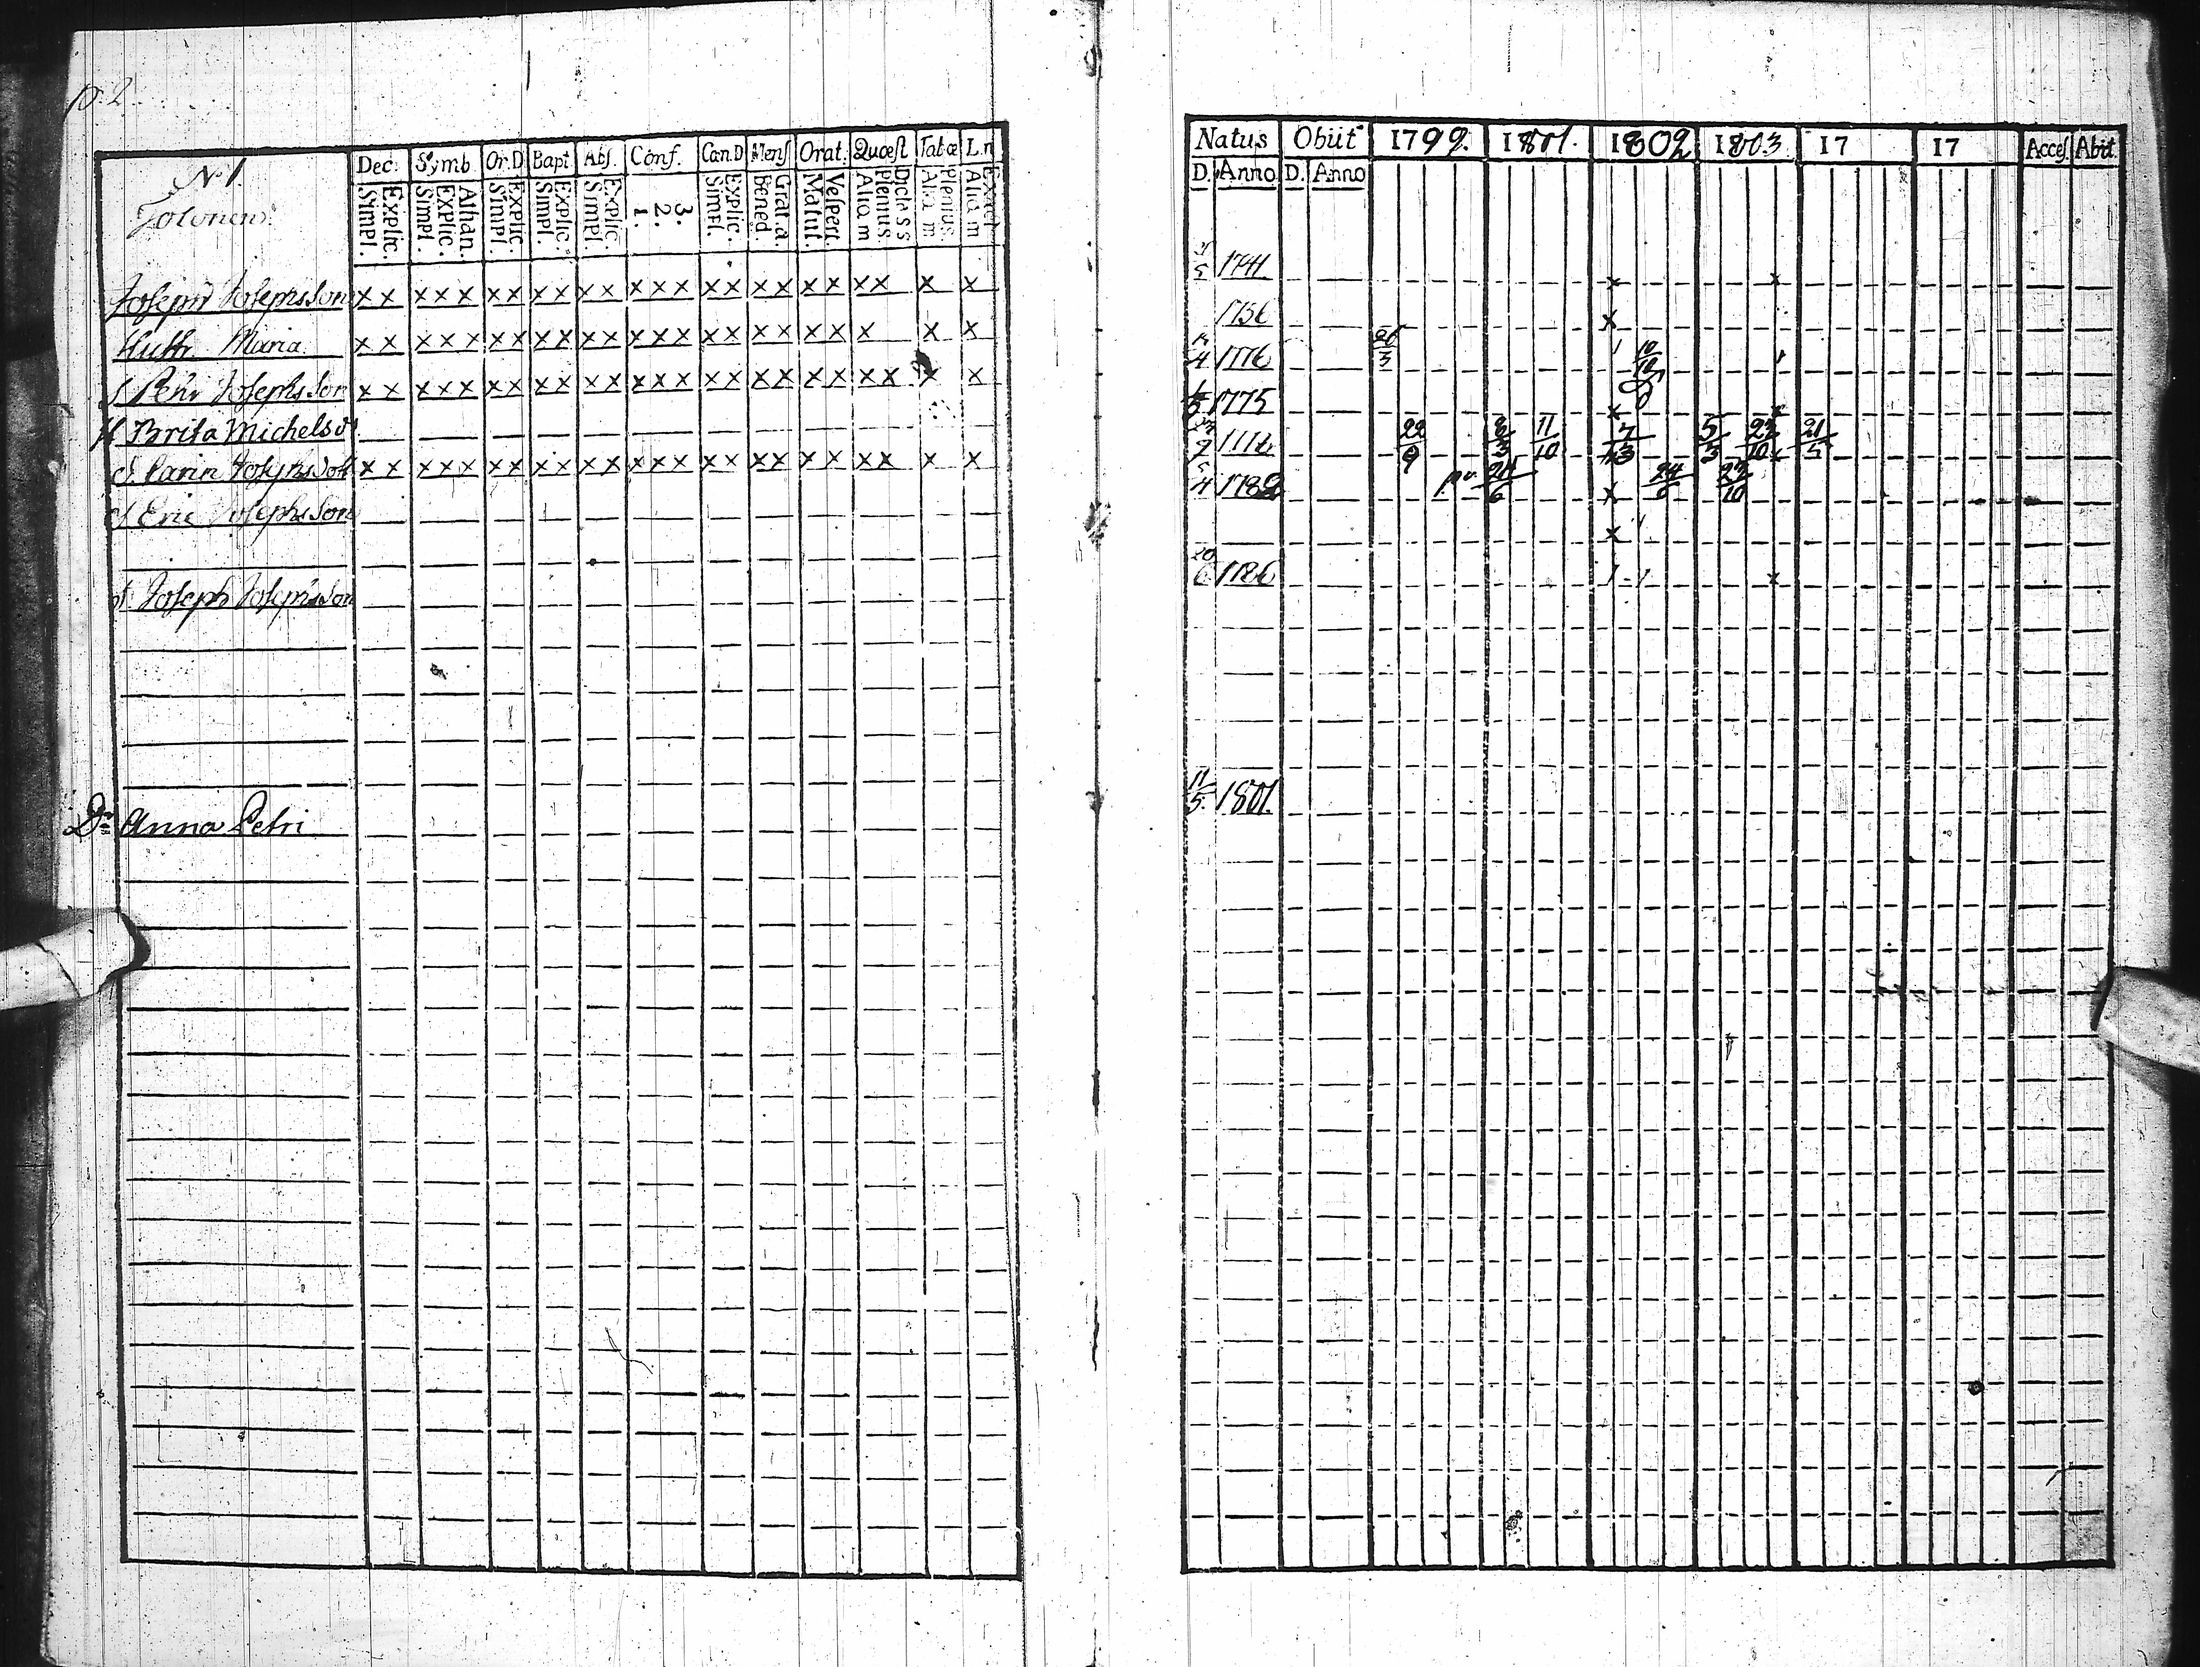 p. 2.
Dec. Symb Or.D Bapt Abs. Conf. Can.D Mens Orat. Quæst Tabæ L.n
N:1.
Explic. Simpl. Athan. Explic. Simpl. Explic. Simpl. Explic. Simpl. Explic. Simpl. 3. 2. 1. Explic. Simpl. Grat.a. Bened. Vespert. Matut. Dicta s s Plenius. Aliq. m Plenius. Aliq. m Exact. Aliq. m
Joseph Josephsson x x x x x x x x x x x x x x x x x x x x x x x x
Hustr. Maria x x x x x x x x x x x x x x x x x x x x x x x
S Pehr Josephsson x x x x x x x x x x x x x x x x x x x x x x x x
H Brita Michelsd
Carin Josephsdott x x x x x x x x x x x x x x x x x x x x x x x x
S Eric Josephsson
S. Joseph Josephsson
Dr Anna Petri
Natus Obiit 1799. 1801. 1802 1803. 17 17 Acces. Abit.
D. Anno D. Anno
1741 x x
1756 x
4 1776 26/3 10/12
1775 x x
22/9 3/3 11/10 7/3 5/3 23/10 21/5
4 1782 24/6 x 24/6 23/10
x
20/6 1786 x
11/5 1801.